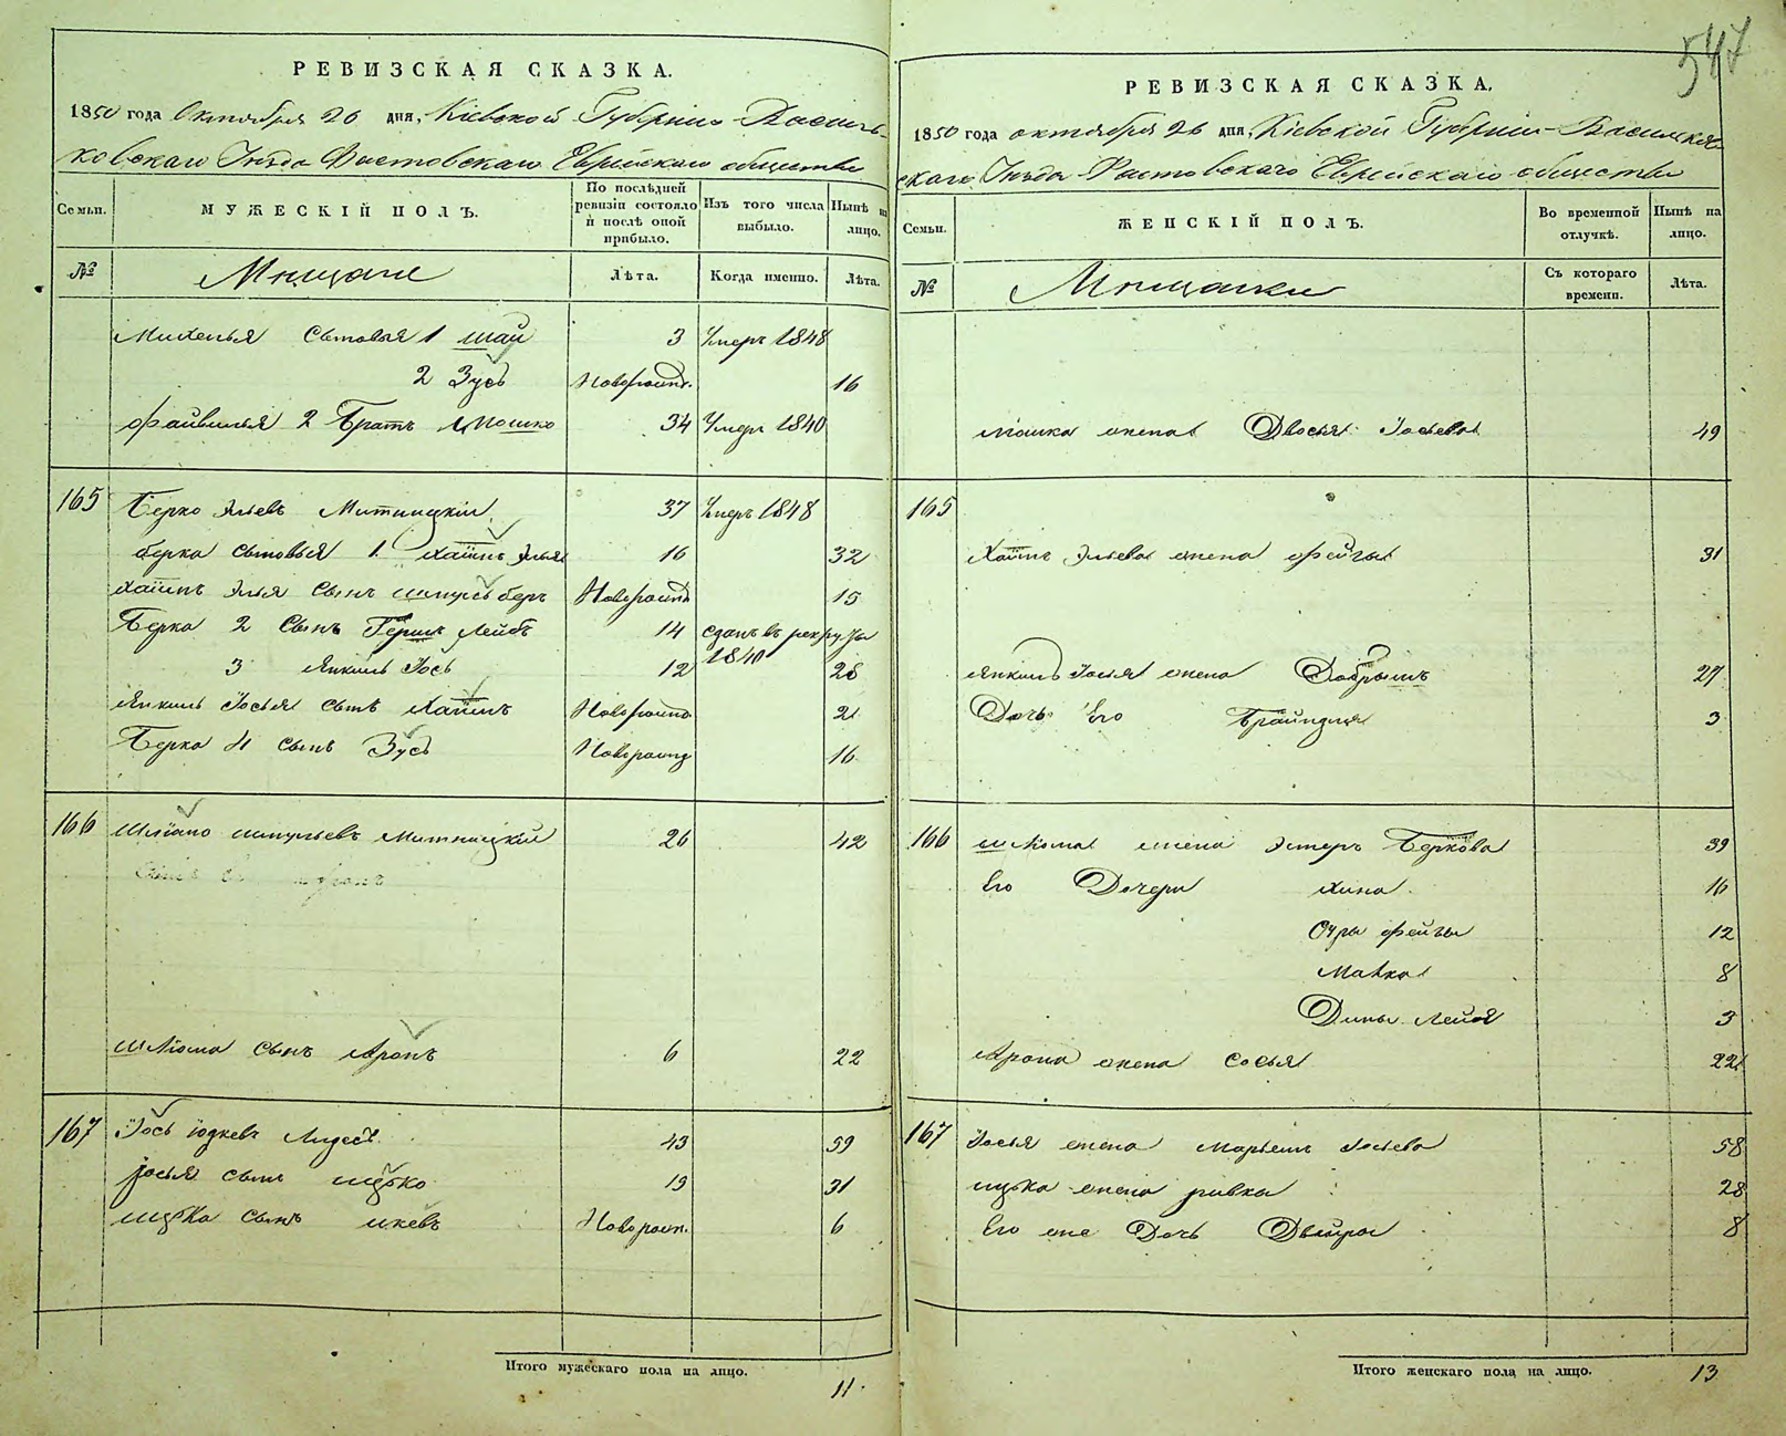 547
РЕВИЗСКАЯ СКАЗКА.
1850 года Октября 26 дня, Кіевской Губерніи Василь-
ковскаго Уѣзда Фастовскаго Еврейскаго общества
Семьи.
МУЖЕСКІЙ ПОЛЪ.
По послѣдней ревизіи состояло и послѣ оной прибыло.
Изъ того числа выбыло.
Нынѣ на лицо.
№
Мещане
Лѣта.
Когда именно.
Лѣта.
сыновья 1 Шай 3 Умеръ 1848
2 Зусь Новорожд. 16
Файвиша 2 братъ Мошко 34 Умеръ 1840
165 Берко Эльевъ Митницкій 37 Умеръ 1848
Берка сыновья 1 Хаимъ Элья 16 32
Хаимъ Элья сынъ Шмуль Беръ Новорожд 15
Берка 2 сынъ Гершъ Лейбъ 14 сданъ въ рекруты 1840
3 Янкель Іось 12 28
Янкель Іосья сынъ Хаимъ Новорожд 2
Берка 4 сынъ Зусь Новорожд 16
166 Шлёмо Шмулевъ Митницкій 26 42
Шлёма сынъ Аронъ 6 22
167 Іось Юдкевъ 43 59
Іосья сынъ Ицько 19 31
Ицька сынъ Новорожд. 6
Итого мужескаго пола на лицо.
11
РЕВИЗСКАЯ СКАЗКА.
1850 года октября 26 дня, Кіевской Губерніи Васильков-
скаго Уѣзда Фастовскаго Еврейскаго общества
Семьи.
ЖЕНСКІЙ ПОЛЪ.
Во временной отлучкѣ.
Нынѣ на лицо.
№
Мещанки
Съ котораго времени.
Лѣта.
Мошка жена Двосья Іосьева 49
165
Хаимъ Эльева жена Фейга 31
Янкель Іосья жена Добрышъ 27
Дочь Его Брайндля 3
166 Шлёма жена Эстеръ Беркова 39
Его Дочери Хина 16
Фейга 12
Малка 8
Дина Лейя 3
Арона жена Сосья 22
167 Іосья жена Марьемъ Іосьева 58
Ицька жена Ривка 28
Его же Дочь Двойра 8
Итого женскаго пола на лицо.
13